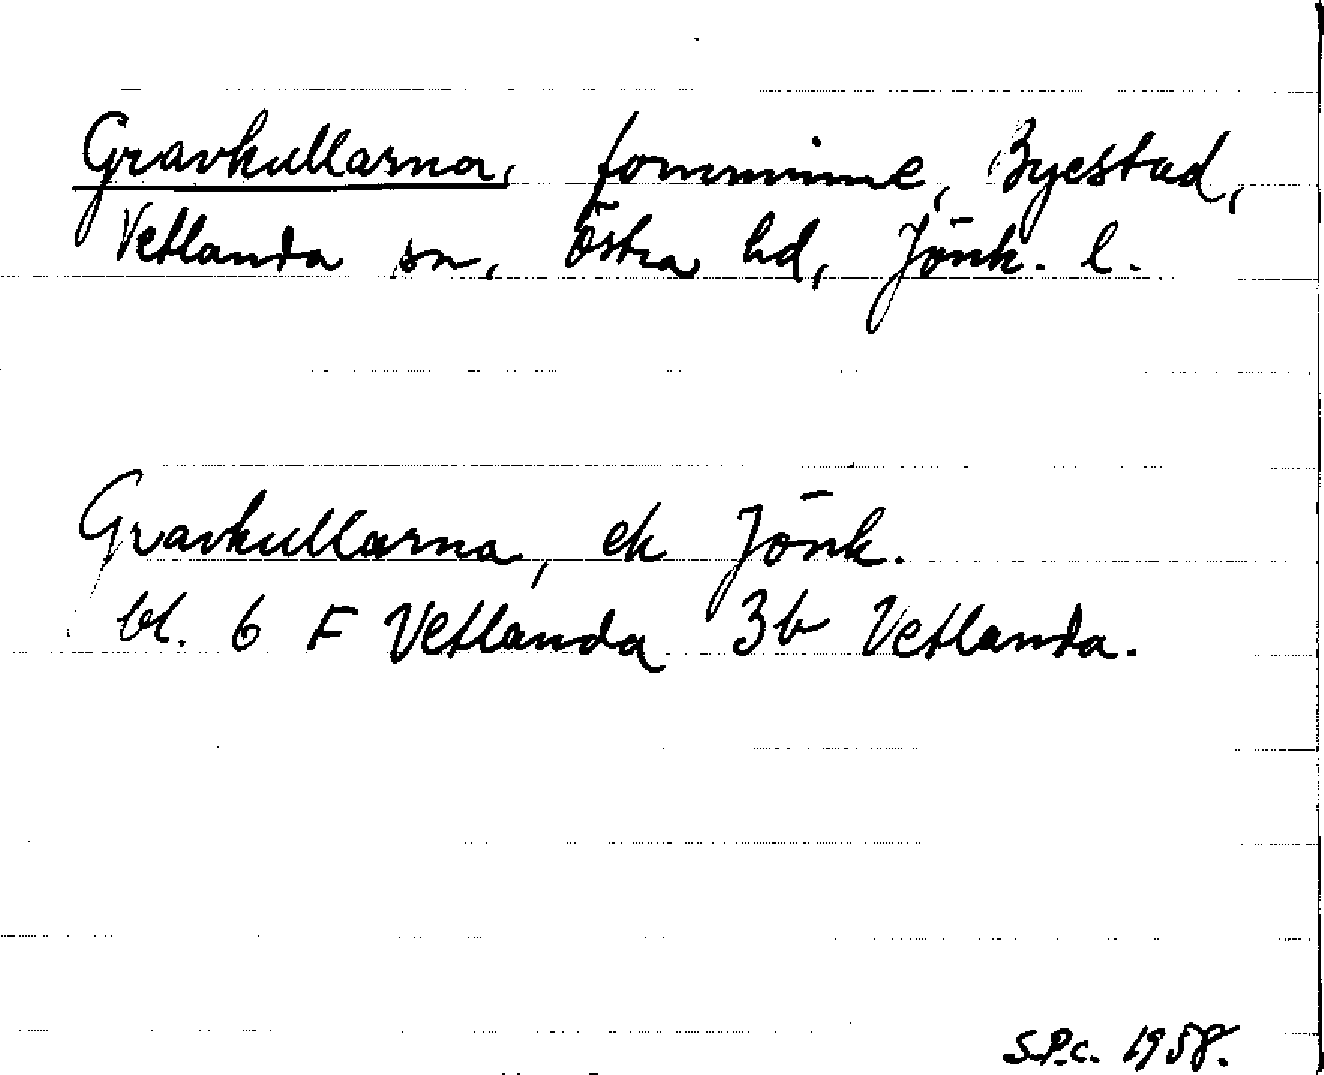 Gravkullarna, fornminne, Byestad,
Vetlanda sn, Östra hd, Jönk. l.
Gravkullarna, ek Jönk.
bl. 6 F Vetlanda 3b Vetlanda.
S.P.c. 1958.